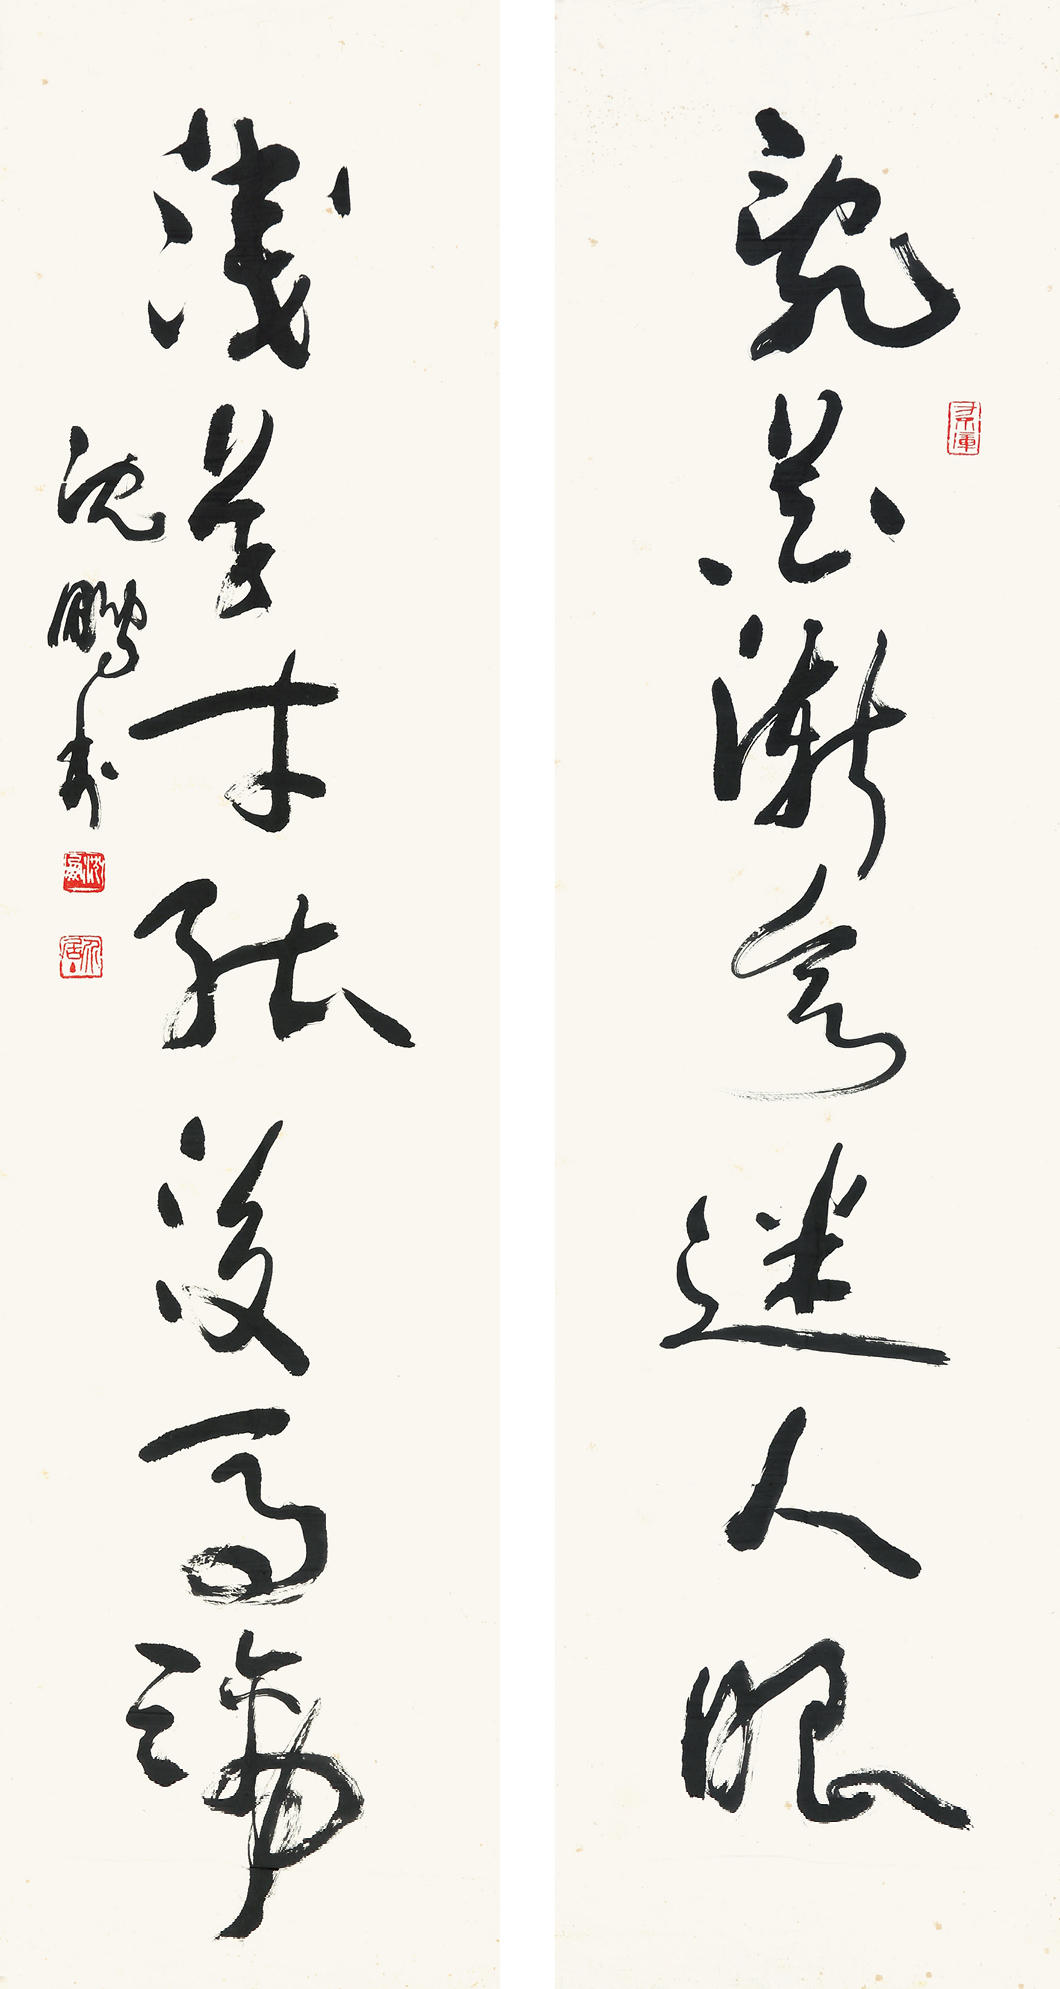 亂花漸欲迷人眼
淺草才能沒馬蹄
沈鵬書
沈鵬
介居